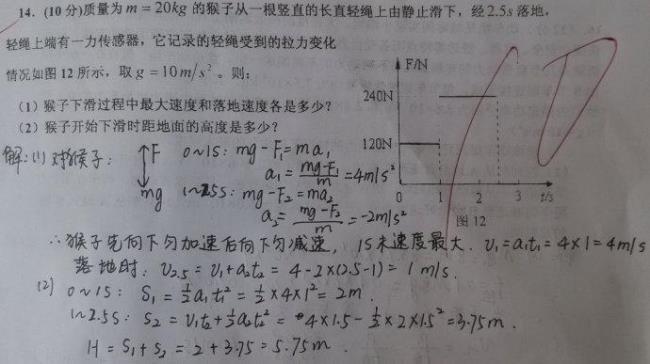 14. (10分)质量为 m = 20kg 的猴子从一根竖直的长直轻绳上由静止滑下，经2.5s落地，
轻绳上端有一力传感器，它记录的轻绳受到的拉力变化
情况如图12所示，取 g = 10m/s²。则：
(1) 猴子下滑过程中最大速度和落地速度各是多少？
(2) 猴子开始下滑时距地面的高度是多少？
F/N
240N
120N
0 1 2 3 t/s
图12
解：(1) 对猴子：
F
mg
0~1s: mg - F₁ = ma₁
a₁ = (mg-F₁)/m = 4m/s²
1~2.5s: mg - F₂ = ma₂
a₂ = (mg-F₂)/m = -2m/s²
∴ 猴子先向下匀加速后向下匀减速，1s末速度最大. v₁ = a₁t₁ = 4×1 = 4m/s
落地时: v₂.₅ = v₁ + a₂t₂ = 4 - 2×(2.5-1) = 1 m/s.
(2) 0~1s: S₁ = ½a₁t₁² = ½×4×1² = 2m.
1~2.5s: S₂ = v₁t₂ + ½a₂t₂² = 4×1.5 - ½×2×1.5² = 3.75m.
H = S₁ + S₂ = 2 + 3.75 = 5.75m.